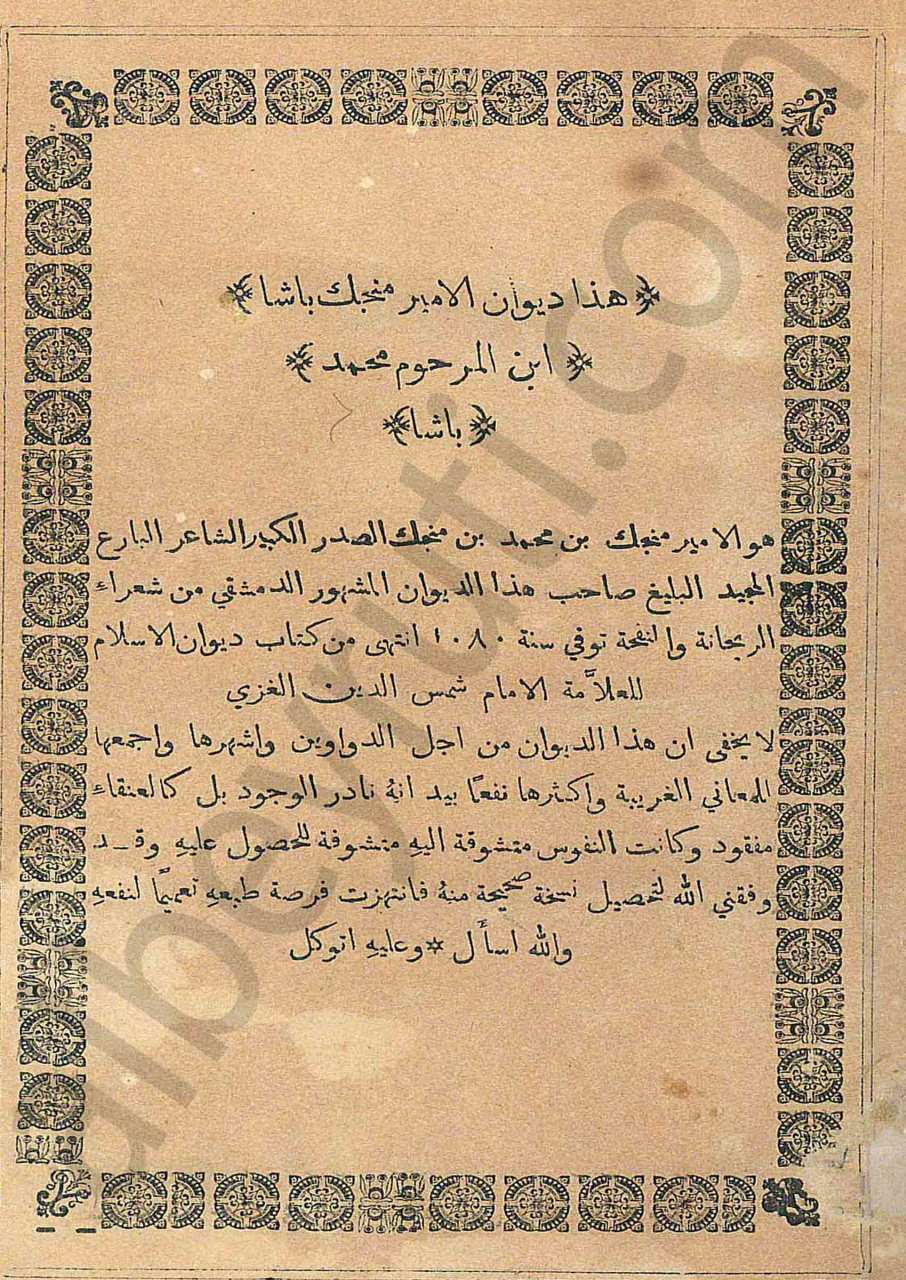 ﴿ هذا ديوان الامير منجك باشا ﴾
﴿ ابن المرحوم محمد ﴾
﴿ باشا ﴾
هو الامير منجك بن محمد بن منجك الصدر الكبير الشاعر البارع
المجيد البليغ صاحب هذا الديوان المشهور الدمشقي من شعراء
الريحانة والنفحة توفي سنة ١٠٨٠ انتهى من كتاب ديوان الاسلام
للعلاَّمة الامام شمس الدين الغزي
لا يخفى ان هذا الديوان من اجل الدواوين واشهرها واجمعها
للمعاني الغريبة واكثرها نفعًا بيد انهُ نادر الوجود بل كالعنقاء
مفقود وكانت النفوس متشوقة اليهِ متشوفة للحصول عليهِ وقـد
وفقني الله لتحصيل نسخة صحيحة منهُ فانتهزت فرصة طبعهِ تعميمًا لنفعهِ
والله اسأَل * وعليهِ اتوكل
albeyruti.com